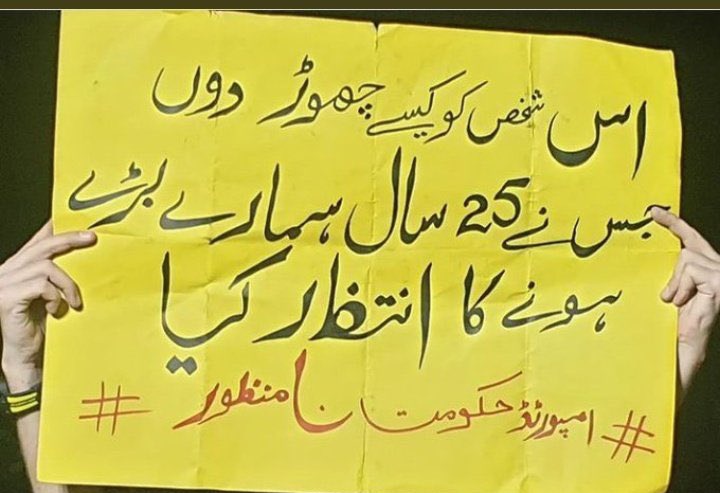 اس شخص کو کیسے چھوڑ دوں
جس نے 25 سال ہمارے بڑے
ہونے کا انتظار کیا
# امپورٹڈ حکومت نا منظور #